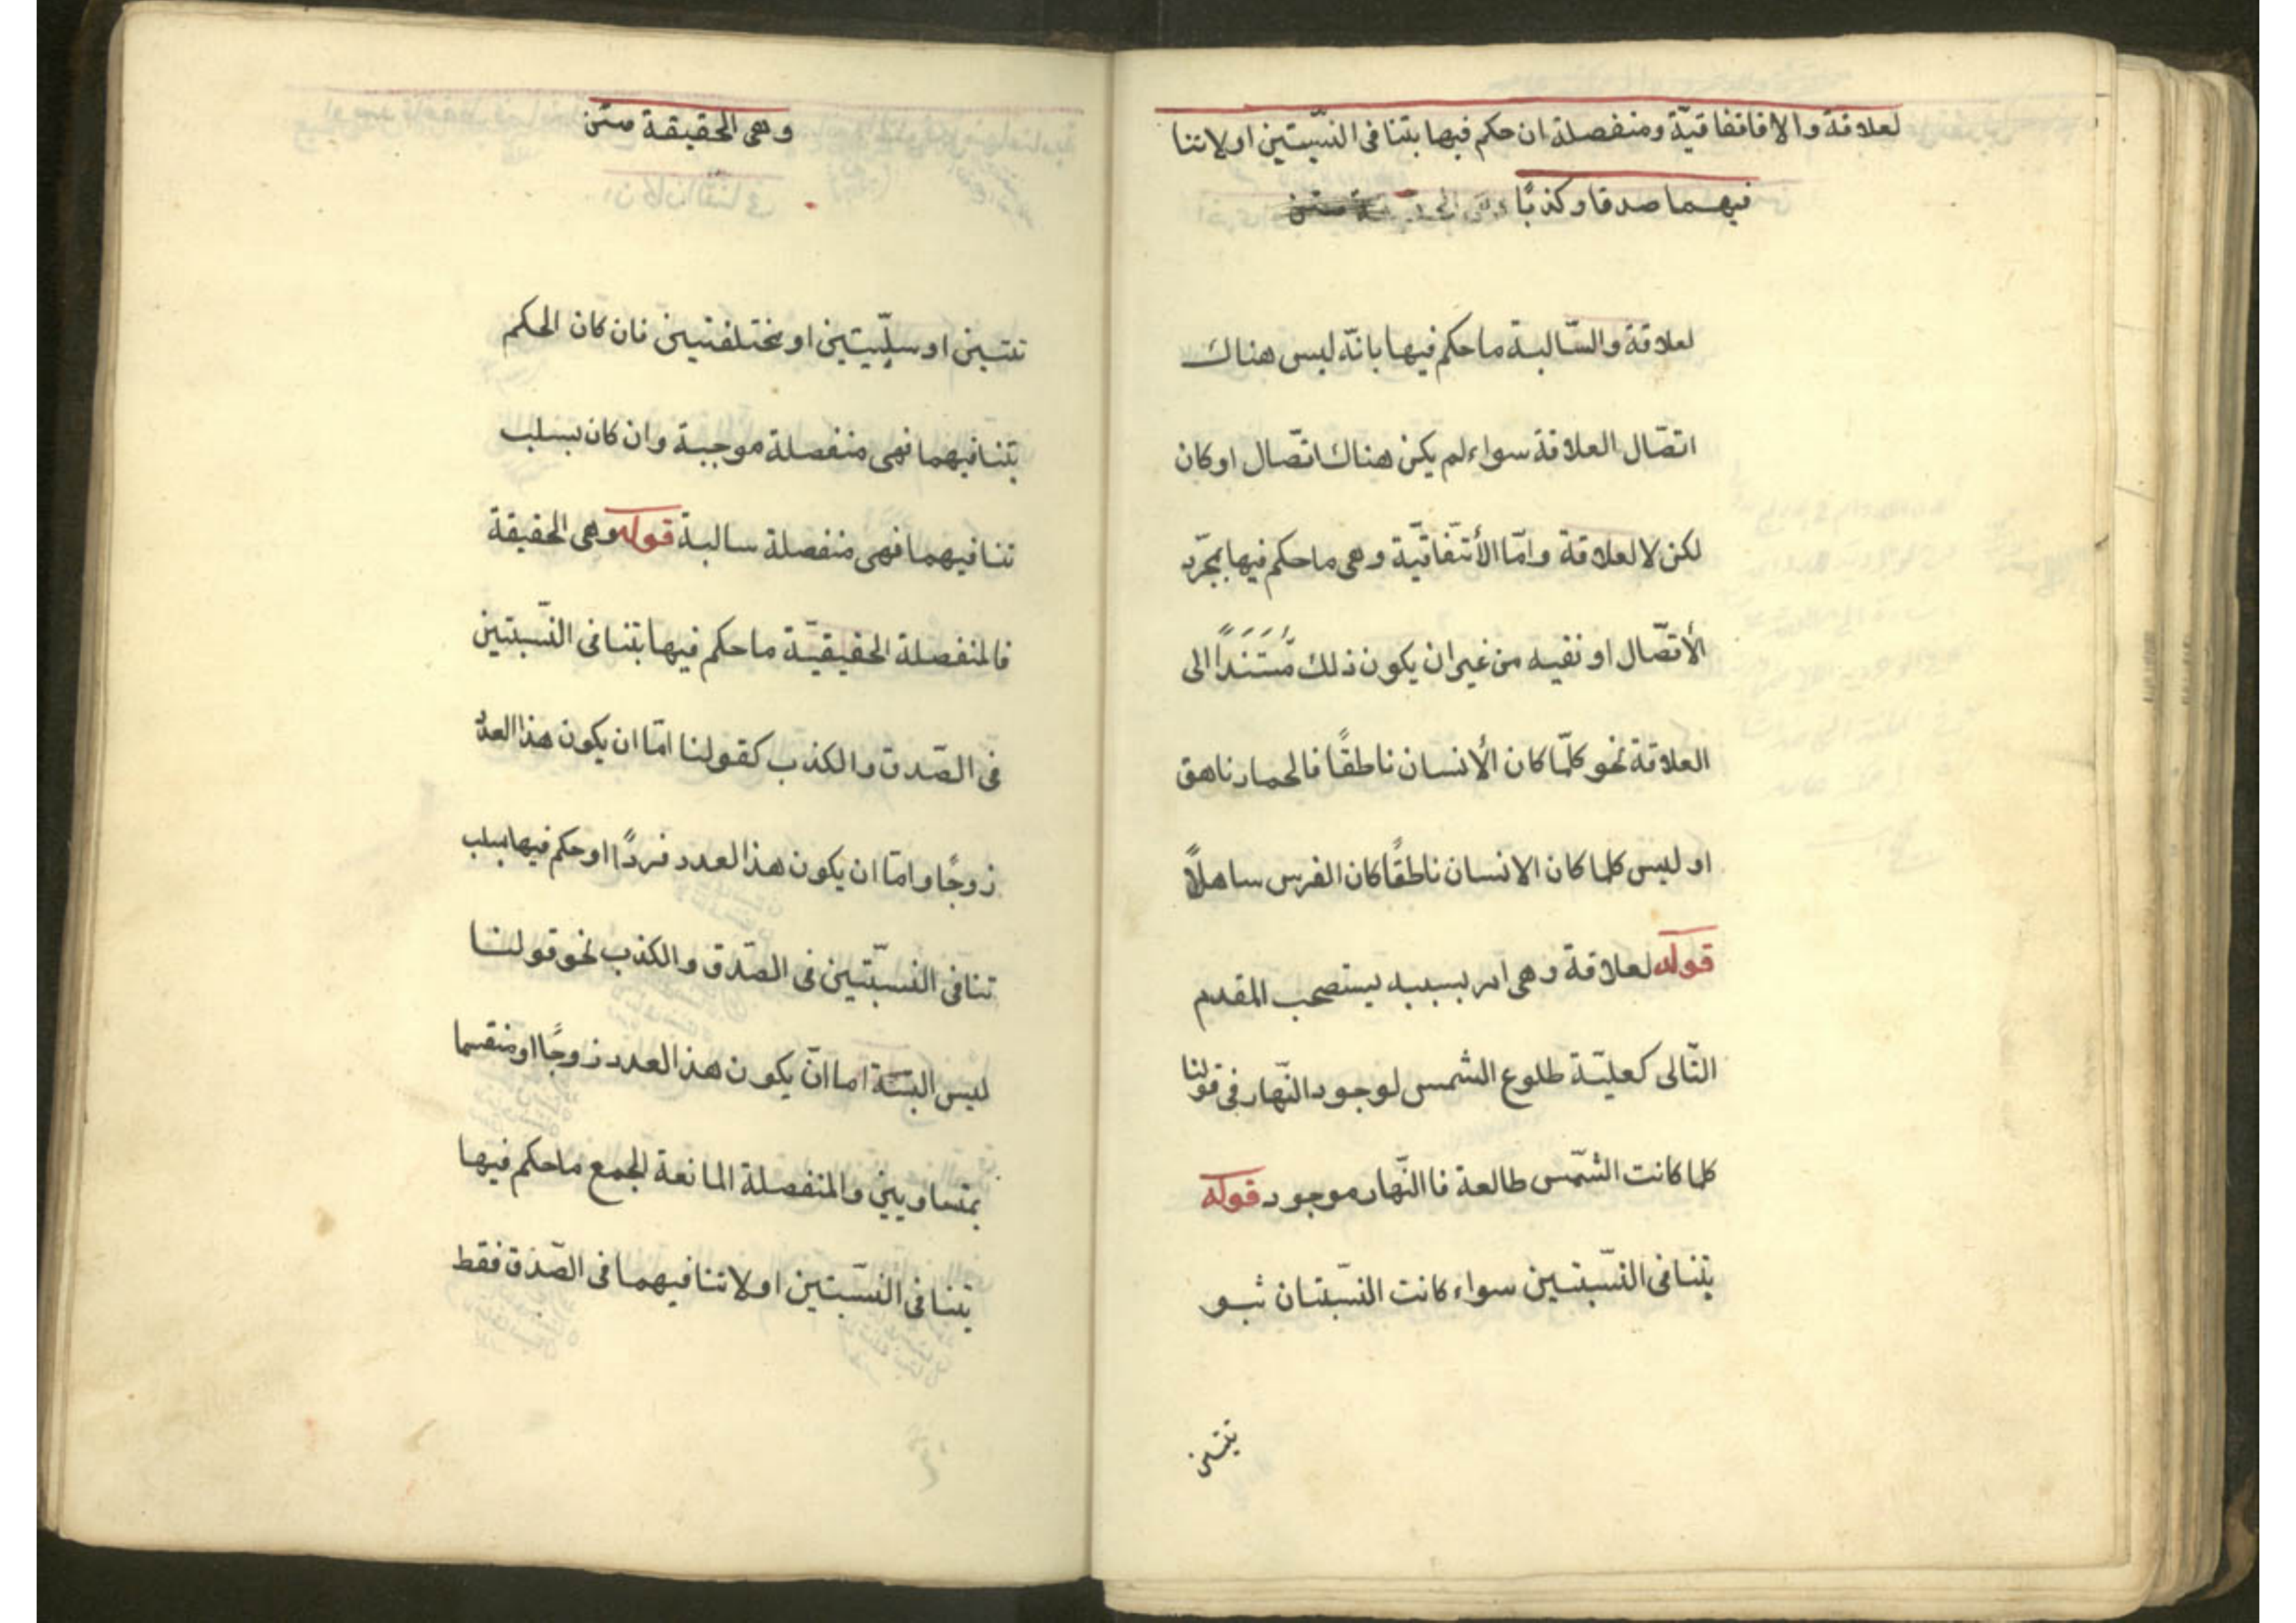 لعلاقة والا فاتفاقيّة ومنفصلة ان حكم فيها بتنافى النسّبتين اولاتنا
فيهما صدقا وكذبًا
لعلاقة والسّالبة ماحكم فيها بانّه ليس هناك
اتصّال العلاقة سواء لم يكن هناك اتصّال اوكان
لكن لا لعلاقة وامّا الأتّفاقيّة وهى ماحكم فيها بمجرّد
الأتصّال او نفيه من غير ان يكون ذلك مُسَتَنَداً الى
العلاقة نحو كلّما كان الأنسان ناطقًا فالحمار ناهق
او ليس كلما كان الانسان ناطقًا كان الفرس ساهلًا
قوله لعلاقة وهى امر بسببه يستصحب المقدم
التّالى كعليّة طلوع الشمس لوجود النّهار فى قولنا
كلما كانت الشمّس طالعة فا النّهار موجود قوله
بتنافى النسّبتين سواء كانت النسّبتان ثبو
تيتين
وهى الحقيقة متن
تيتين او سلبّيتين او مختلفتيين فان كان الحكم
بتنافيهما فهى منفصلة موجبة وان كان بسلب
تنافيهما فهى منفصلة سالبة قوله وهى الحقيقة
فالمنفصلة الحقيقيّة ماحكم فيها بتنافى النسّبتين
فى الصّدق والكذب كقولنا امّا ان يكون هذا العدد
زوجًا وامّا ان يكون هذا العدد فردًا او حكم فيها بسلب
تنافى النسبّتين فى الصّدق والكذب نحو قولنا
ليس البتّة اما انّ يكون هذ العدد زوجًا او منقسما
بمتساويين والمنفصلة المانعة الجمع ماحكم فيها
بتنافى النسّبتين اولا تنافيهما فى الصّدق فقط